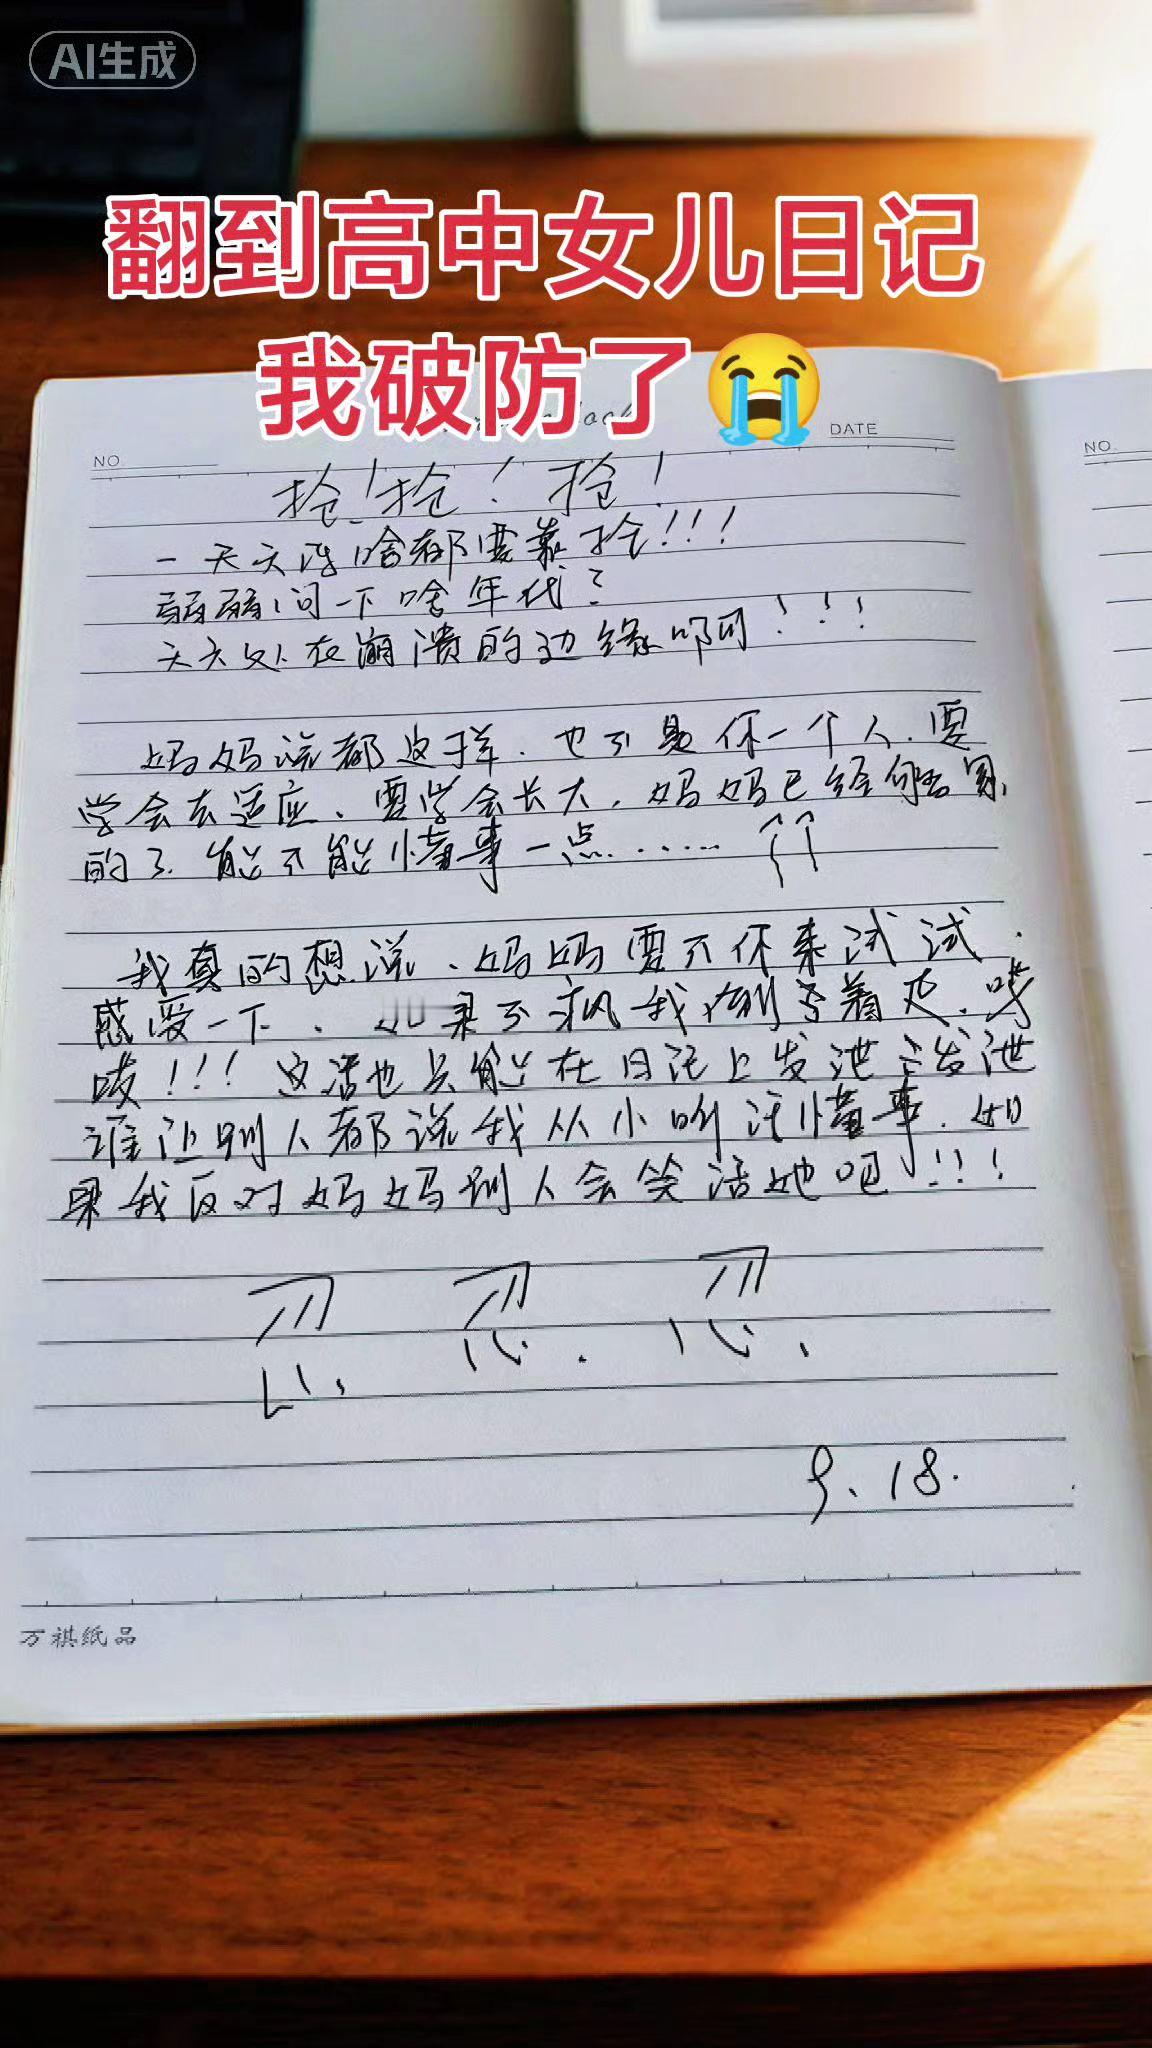 AI生成
翻到高中女儿日记
我破防了😭
NO.
DATE
NO.
抢!抢!抢!
一天天净啥都要靠抢!!!
弱弱问一下啥年代?
天天处在崩溃的边缘啊!!!
妈妈说都这样.也不是你一个人.要
学会去适应、要学会长大,妈妈已经够累
的了.能不能懂事一点......
我真的想说、妈妈要不你来试试.
感受一下、如果不疯我倒着走.哼
唛!!!这话也只能在日记上发泄发泄
谁让别人都说我从小听话懂事.如
果我反对妈妈别人会笑话她吧!!!
忍 忍. 忍.
9.18.
万祺纸品